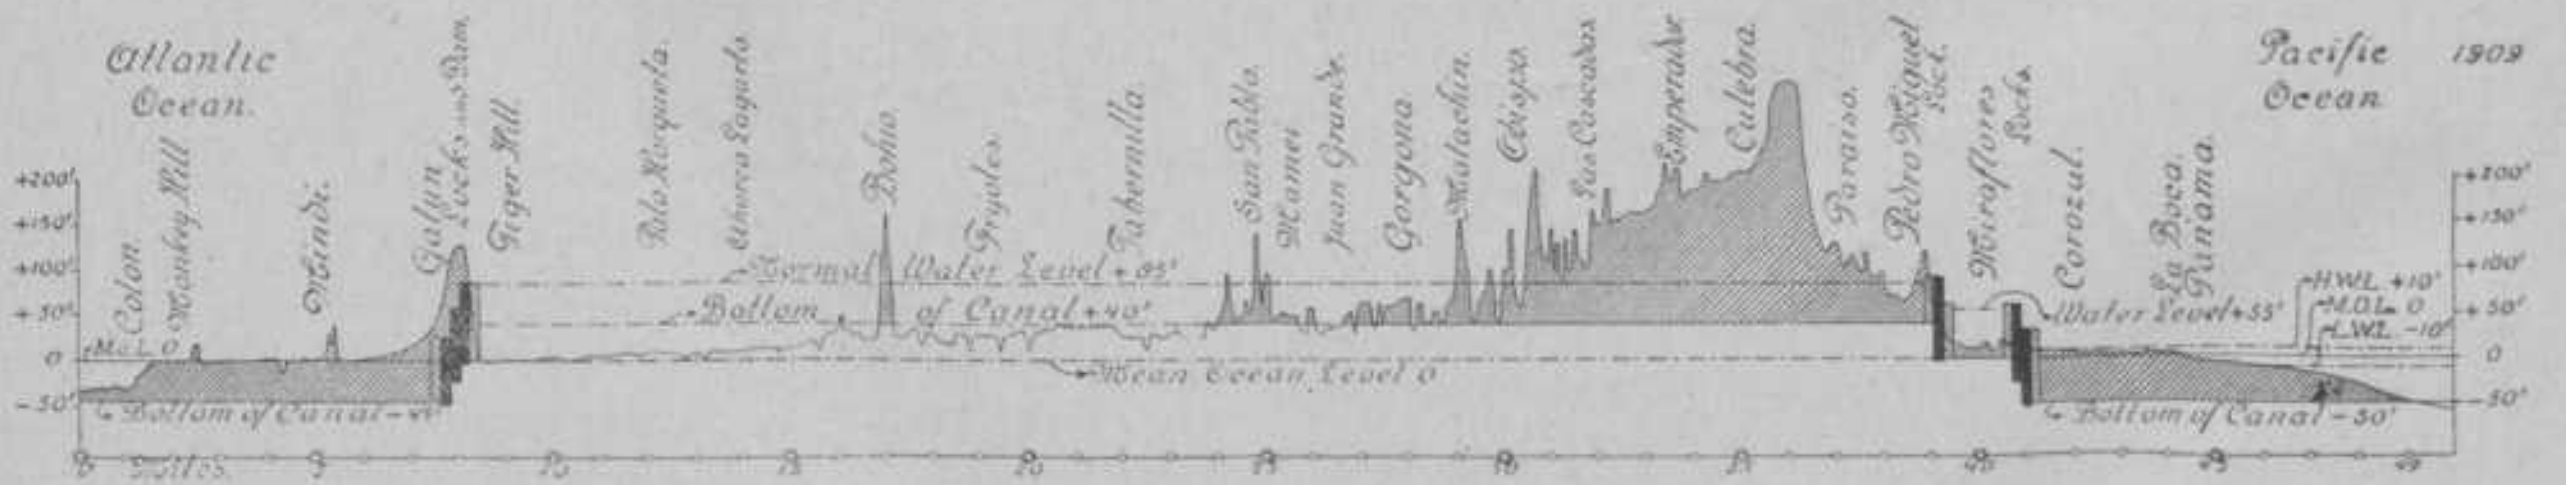 Atlantic
Ocean.
Pacific
Ocean
1909
Colon.
Monkey Hill
Mindi.
Gatun
Locks and Dam.
Tiger Hill.
Palo Horqueta.
Bohio.
Tabernilla.
San Pablo.
Mamei
Juan Grande.
Gorgona
Matachin.
Obispo.
Las Cascadas
Emperador
Culebra.
Paraiso.
Pedro Miguel
Lock.
Miraflores
Locks.
Corozal.
La Boca.
Panama.
+200'
+150'
+100'
+50'
0
-50'
M.O.L. 0
Normal Water Level +85'
Bottom of Canal +40'
Mean Ocean Level 0
Bottom of Canal -41'
Water Level +55'
H.W.L. +10'
M.O.L. 0
L.W.L. -10'
Bottom of Canal -50'
+200'
+150'
+100'
+50'
0
-50'
0
Miles.